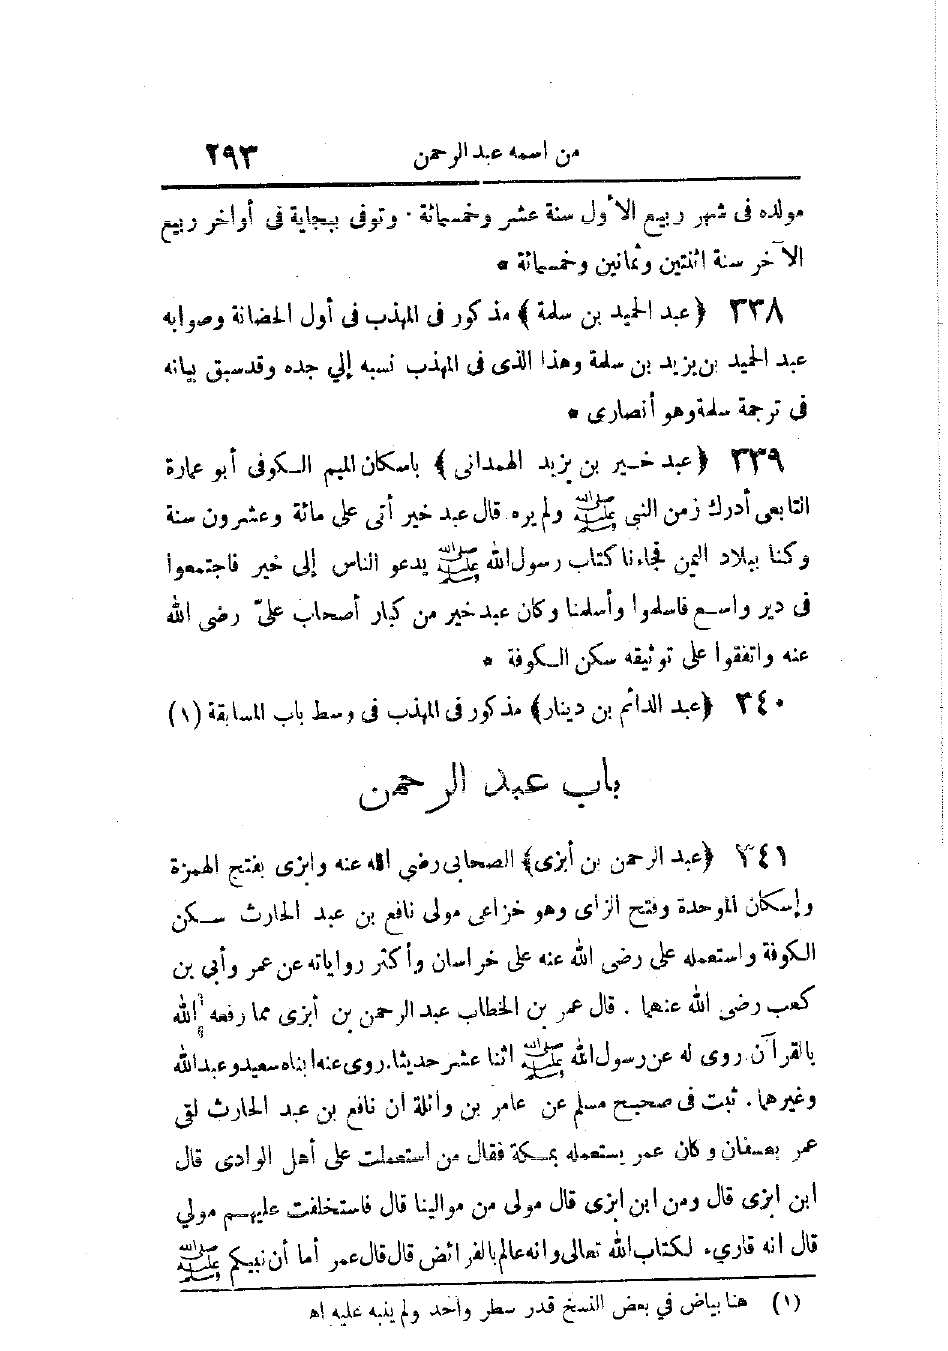 من اسمه عبد الرحمن ٢٩٣
مولده فى شهر ربيع الأول سنة عشر وخمسمائة . وتوفى ببجاية فى أواخر ربيع
الآخر سنة اثنتين وثمانين وخمسمائة *
٣٣٨ ﴿ عبد الحميد بن سلمة ﴾ مذكور فى المهذب فى أول الحضانة وصوابه
عبد الحميد بن يزيد بن سلمة وهذا الذى فى المهذب نسبه إلي جده وقد سبق بيانه
فى ترجمة سلمة وهو أنصارى *
٣٣٩ ﴿ عبد خير بن يزيد الهمدانى ﴾ باسكان الميم الكوفى أبو عمارة
التابعى أدرك زمن النبى ﷺ ولم يره قال عبد خير أتى علي مائة وعشرون سنة
وكنا ببلاد اليمن فجاءنا كتاب رسول الله ﷺ يدعو الناس إلى خير فاجتمعوا
فى دير واسع فاسلموا وأسلمنا وكان عبد خير من كبار أصحاب علىّ رضى الله
عنه واتفقوا على توثيقه سكن الكوفة *
٣٤٠ ﴿عبد الدائم بن دينار﴾ مذكور فى المهذب فى وسط باب المسابقة (١)
باب عبد الرحمن
٣٤١ ﴿عبد الرحمن بن أبزى﴾ الصحابى رضي الله عنه وابزى بفتح الهمزة
وإسكان الموحدة وفتح الزاى وهو خزاعى مولى نافع بن عبد الحارث سكن
الكوفة واستعمله علي رضى الله عنه على خراسان وأكثر رواياته عن عمر وأبي بن
كعب رضى الله عنهما . قال عمر بن الخطاب عبد الرحمن بن أبزى مما رفعه الله
بالقرآن روى له عن رسول الله ﷺ اثنا عشر حديثا. روى عنه ابناه سعيد وعبد الله
وغيرهما . ثبت فى صحيح مسلم عن عامر بن واثلة ان نافع بن عبد الحارث لقى
عمر بعسفان وكان عمر يستعمله بمكة فقال من استعملت على أهل الوادى قال
ابن ابزى قال ومن ابن ابزى قال مولى من موالينا قال فاستخلفت عليهم مولي
قال انه قاريء لكتاب الله تعالى وانه عالم بالفرائض قال قال عمر أما أن نبيكم ﷺ
(١) هنا بياض في بعض النسخ قدر سطر واحد ولم ينبه عليه اه